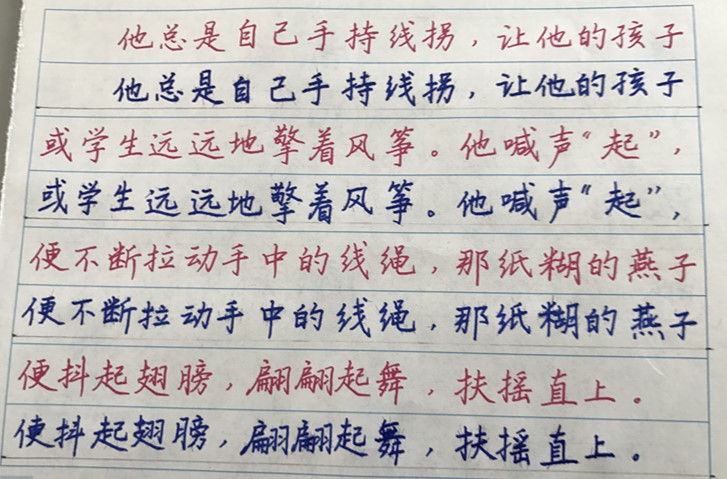 他总是自己手持线拐，让他的孩子
他总是自己手持线拐，让他的孩子
或学生远远地擎着风筝。他喊声“起”，
或学生远远地擎着风筝。他喊声“起”，
便不断拉动手中的线绳，那纸糊的燕子
便不断拉动手中的线绳，那纸糊的燕子
便抖起翅膀，翩翩起舞，扶摇直上。
便抖起翅膀，翩翩起舞，扶摇直上。